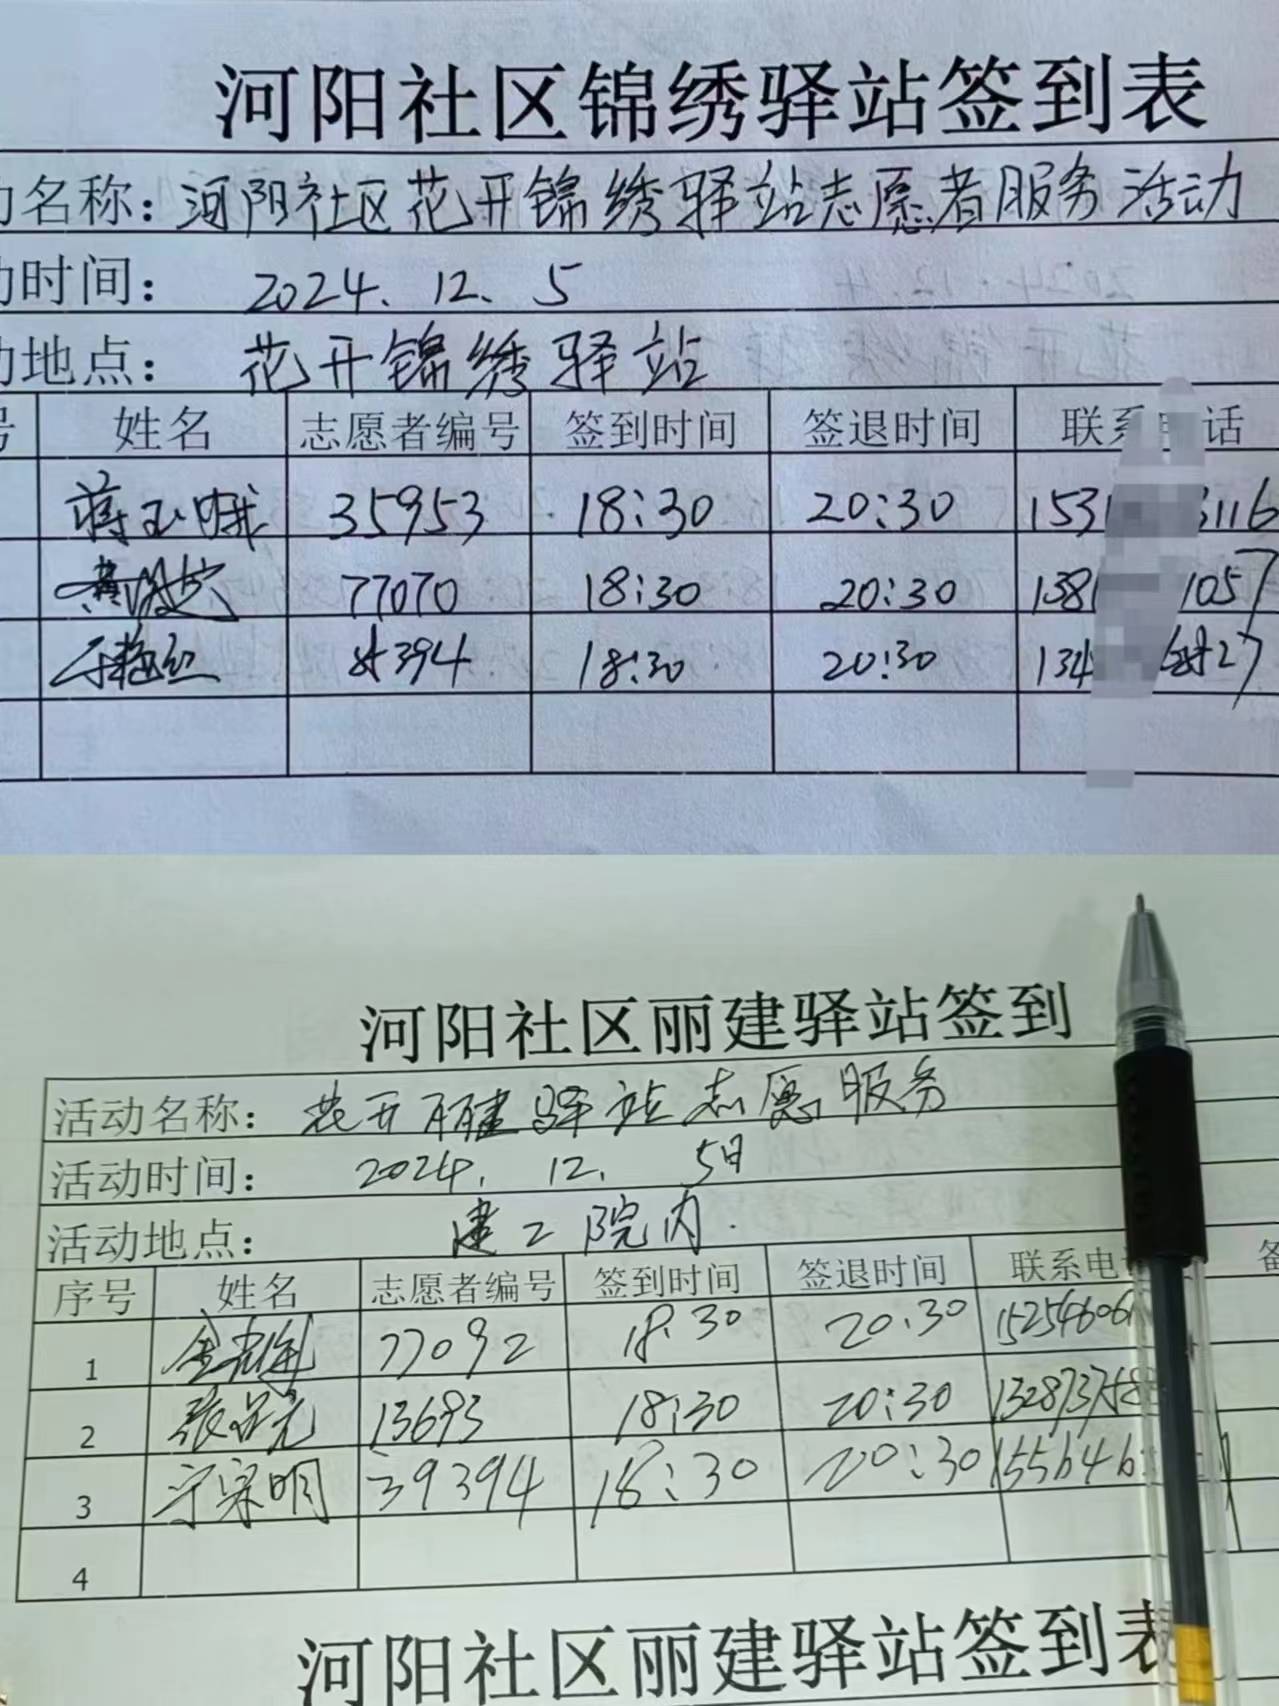 河阳社区锦绣驿站签到表
动名称：河阳社区花开锦绣驿站志愿者服务活动
动时间： 2024.12.5
动地点： 花开锦绣驿站
号 姓名 志愿者编号 签到时间 签退时间 联系电话
蒋玉娥 35953 18:30 20:30 153 3116
77070 18:30 20:30 138 1057
394 18:30 20:30 134 27
河阳社区丽建驿站签到
活动名称： 花开丽建驿站志愿服务
活动时间： 2024.12.5日
活动地点： 建工院内.
序号 姓名 志愿者编号 签到时间 签退时间 联系电 备
1 77092 18:30 20:30 15254606
2 13693 18:30 20:30 132873758
3 宁宋明 39394 18:30 20:30 155646
4
河阳社区丽建驿站签到表